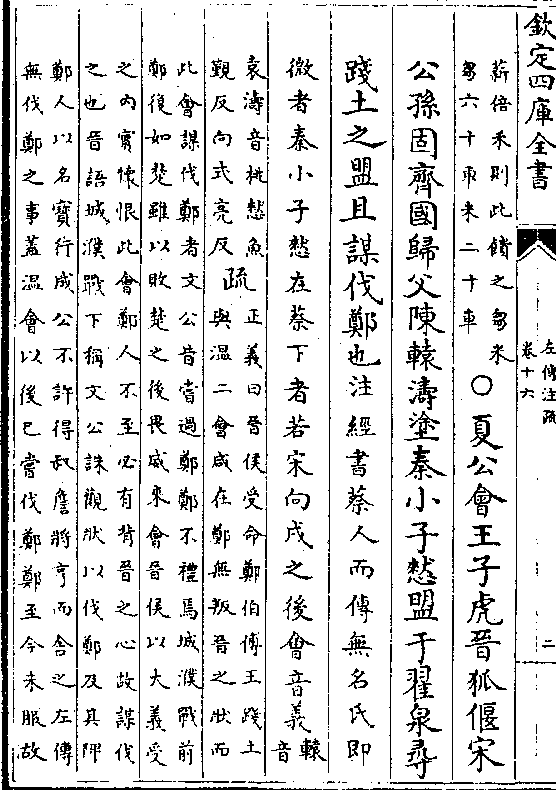 欽定四庫全書
左傳注疏
卷十六
二
薪倍禾則此饋之芻米
芻六十車米二十車
○夏公會王子虎晉狐偃宋
公孫固齊國歸父陳轅濤塗秦小子憖盟于翟泉尋
踐土之盟且謀伐鄭也注經書蔡人而傳無名氏即
微者秦小子憖在蔡下者若宋向戌之後會音義
轅
音
袁濤音桃憖魚
覲反向式亮反
疏
正義曰晉侯受命鄭伯傅王踐土
與溫二會咸在鄭無叛晉之狀而
此會謀伐鄭者文公昔嘗過鄭鄭不禮焉城濮戰前
鄭復如楚雖以敗楚之後畏威來會晉侯以大義受
之內實懷恨此會鄭人不至必有背晉之心故謀伐
之也晉語城濮戰下稱文公誅觀狀以伐鄭及其陴
鄭人以名寶行成公不許得叔詹將亨而舍之左傳
無伐鄭之事蓋溫會以後已嘗伐鄭鄭至今未服故